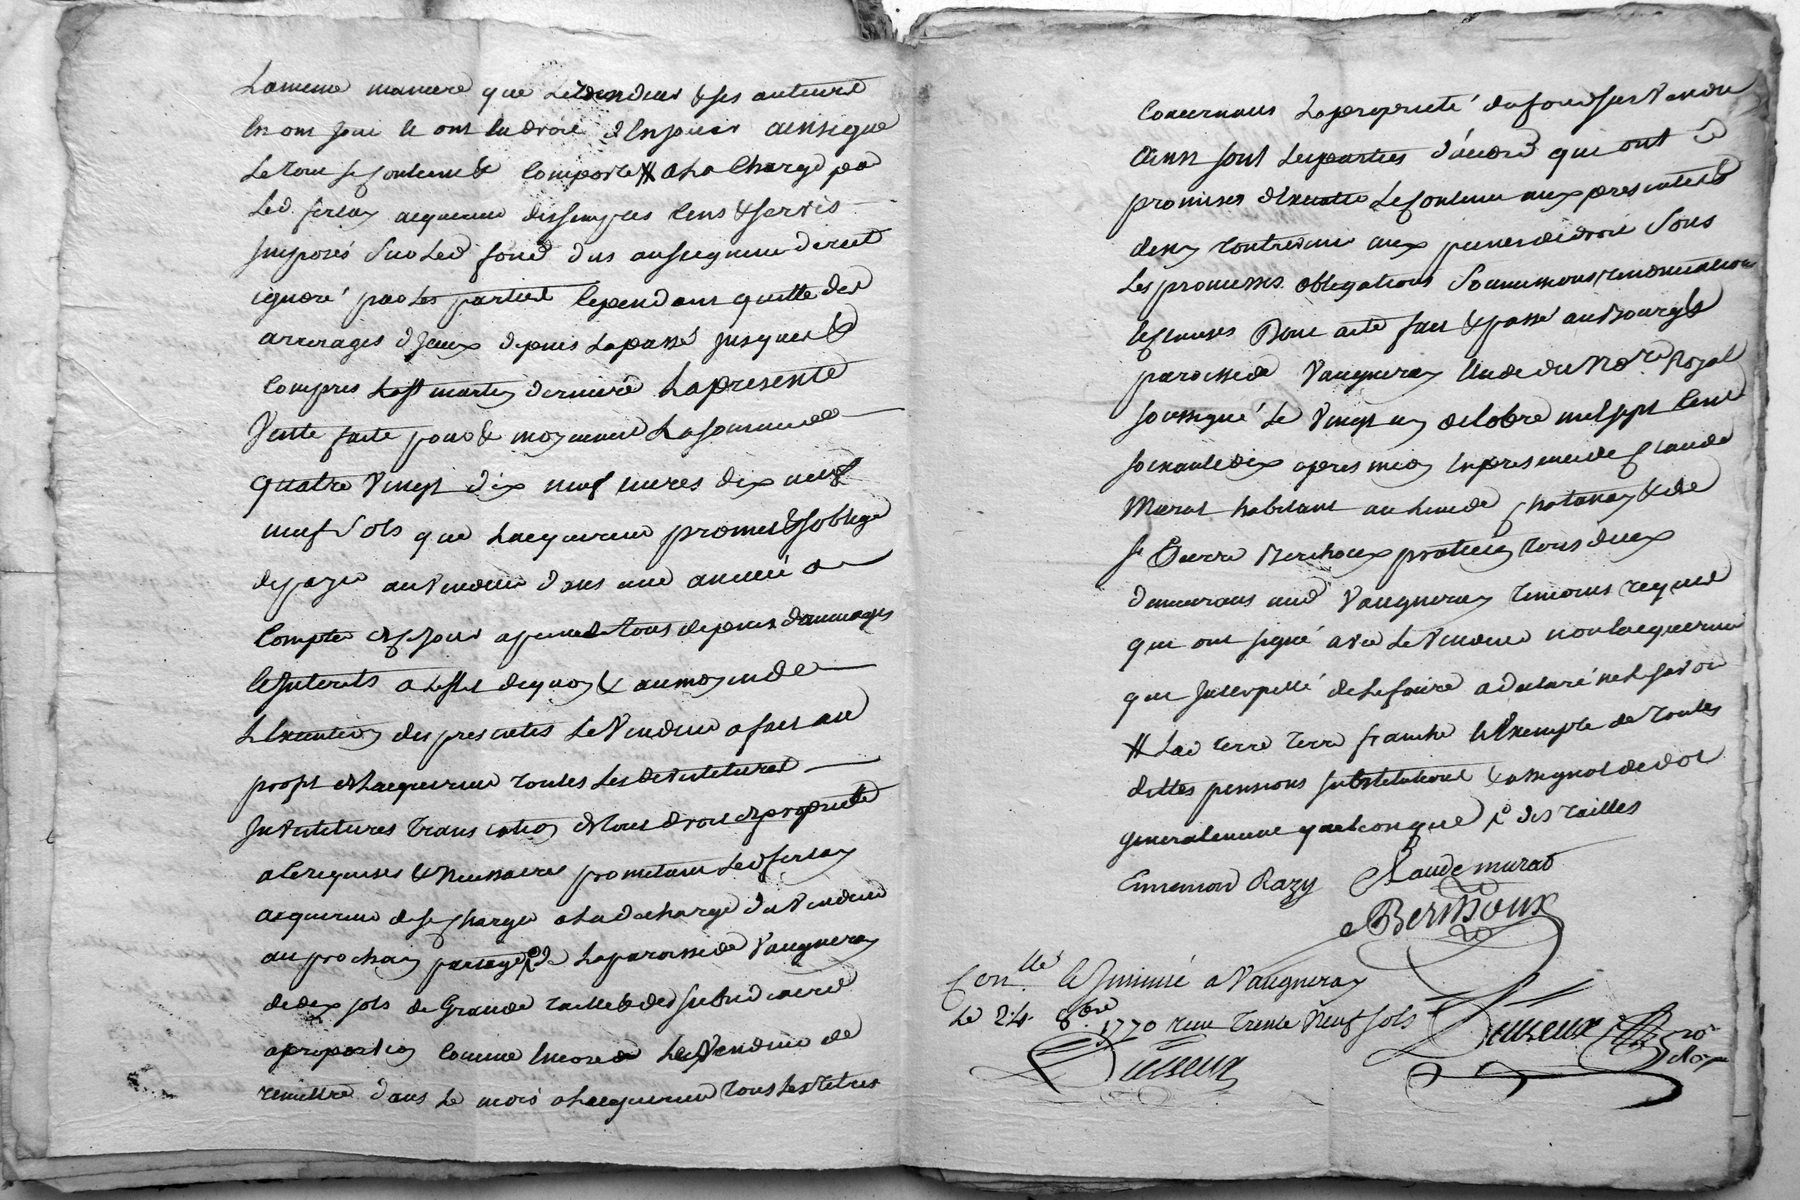 Lameme maniere que Levendeur & ses auteurs
En ont joui & ont eu droit d'En jouir ainsi que
Le tout se contient & Comporte # a La Charge par
Led. ferlay acquereur des simples Cens & servis
Imposés sur Led fond dus au seigneur direct
ignoré par Les parties Cependant quitte des
arrerages d'Iceux depuis Le passé jusques &
Compris La st martin derniere La presente
Vente faite pour & moyennant La somme de
quatre Vingt dix neuf livres dix neuf
neuf sols que Lacquereur promet & soblige
de payer au Vendeur dans une année a
Compter de ce jour a peine de tous depens dommages
& Interets a Leffet de quoy & au moyen de
LExecution des presentes Le Vendeur a fait au
profit de Lacquereur toutes Les devestitures
Investitures translation de tous droits de propriété
a Ce requises & Necessaires promettant Led ferlay
acquereur de se Charger a La decharge du Vendeur
au prochain partage de La paroisse de Vaugneray
de deux sols de Grande taille & des subsidiaires
a proportion Comme Encore Le Vendeur de
remettre dans Le mois a Lacquereur tous Les titres
Concernans La proprieté du fond sus Vendu
Ainsi sont Les parties d'accord qui ont
promises d'Executer Le Contenu aux presentes &
de ny Contrevenir aux peines de droit Sous
Les promesses obligations Soumissions renonciations
& Clauses Dont acte fait & passé au Bourg &
paroisse de Vaugneray Etude du No.re Royal
soussigné Le Vingt un octobre mil sept Cent
soixante dix apres midy En presence de Claude
Murat habitant au Lieu de Chatanay & de
sr Pierre Berthoux praticien tous deux
demeurans aud Vaugneray temoins requis
qui ont signé avec Le Vendeur non Lacquereur
qui Interpellé de Le faire a declaré ne Le savoir
# Lad terre terre franche & Exempte de toutes
dettes pensions substitutions & assignat de dot
generalement quelconque & des tailles
Ennemond Razy Claude murat
Berthoux
Con.llé & Insinué a Vaugneray
Le 24 8.bre 1770 recu trente Neuf sols